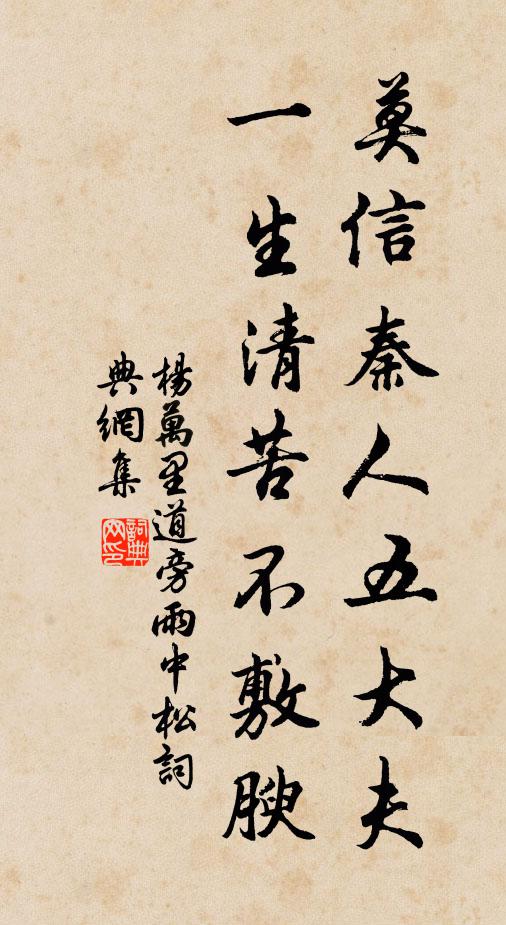 莫信秦人五大夫
一生清苦不敷腴
楊萬里道旁雨中松詞
典網集
詞典網印